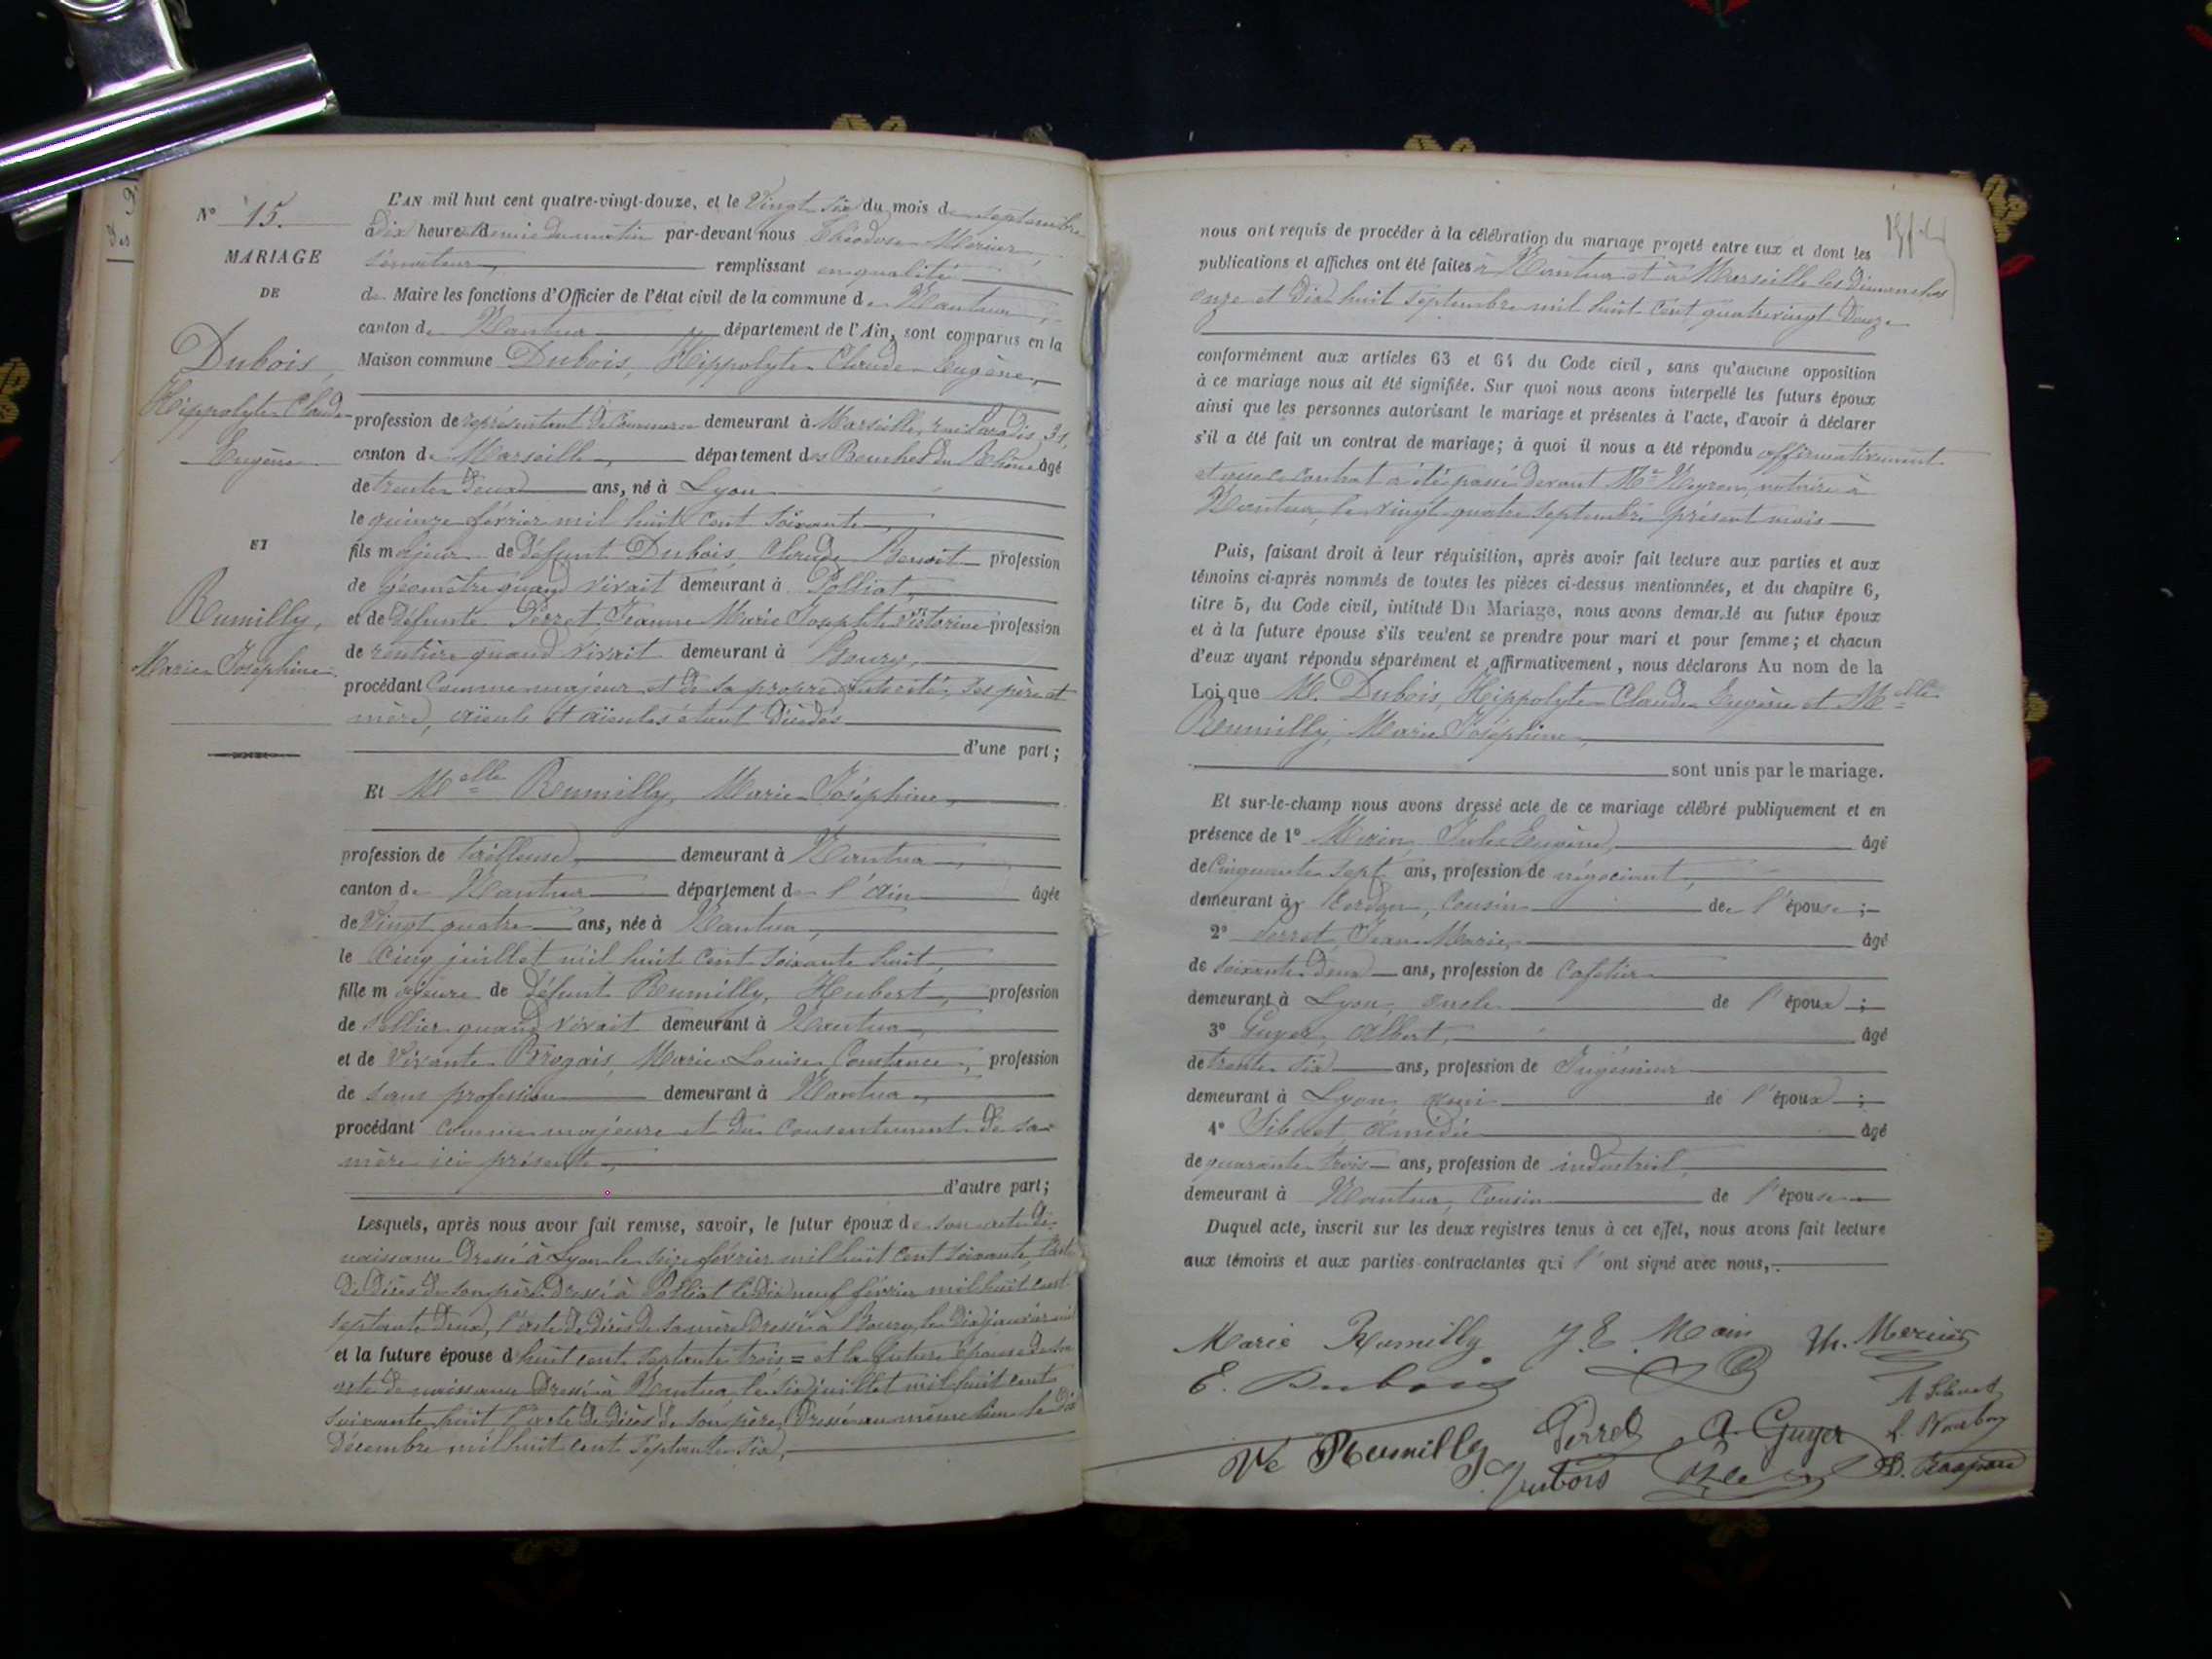 N° 15.
MARIAGE
DE
Dubois,
Hippolyte Claude
Eugène
ET
Rumilly,
Marie Joséphine
L'AN mil huit cent quatre-vingt-douze, et le Vingt six du mois de septembre
à Dix heures & demie du matin par-devant nous Théodose Mercier,
sénateur, remplissant en qualité
de Maire les fonctions d'Officier de l'état civil de la commune de Nantua,
canton de Nantua, département de l'Ain, sont comparus en la
Maison commune Dubois, Hippolyte Claude Eugène,
profession de représentant de Commerce demeurant à Marseille, rue Paradis, 31,
canton de Marseille, département des Bouches du Rhône âgé
de trente deux ans, né à Lyon
le quinze février mil huit cent soixante,
fils majeur de défunt Dubois, Claude Benoit profession
de géomètre quand vivait demeurant à Polliat,
et de défunte Perret, Jeanne Marie Josephte Victorine profession
de rentière quand vivait demeurant à Bourg,
procédant comme majeur et de sa propre autorité, ses père et
mère, aïeuls et aïeules étant décédés
d'une part;
Et Melle Rumilly, Marie Joséphine,
profession de tailleuse, demeurant à Nantua,
canton de Nantua département de l'Ain âgée
de Vingt quatre ans, née à Nantua,
le cinq juillet mil huit cent soixante huit,
fille majeure de défunt Rumilly, Hubert, profession
de sellier quand vivait demeurant à Nantua,
et de vivante Brogais, Marie Louise Constance, profession
de sans profession demeurant à Nantua,
procédant comme majeure et du consentement de sa
mère ici présente,
d'autre part;
Lesquels, après nous avoir fait remise, savoir, le futur époux de son acte de
naissance dressé à Lyon le seize février mil huit cent soixante, l'acte
de décès de son père dressé à Polliat le dix neuf février mil huit cent
septante deux, l'acte de décès de sa mère dressé à Bourg, le dix janvier mil
et la future épouse d huit cent septante trois = et la future épouse de son
acte de naissance dressé à Nantua, le six juillet mil huit cent
soixante huit, l'acte de décès de son père, dressé au même lieu le dix
décembre mil huit cent septante six,
nous ont requis de procéder à la célébration du mariage projeté entre eux et dont les
publications et affiches ont été faites à Nantua et à Marseille les dimanches
onze et dix huit septembre mil huit cent quatre vingt douze
conformément aux articles 63 et 64 du Code civil, sans qu'aucune opposition
à ce mariage nous ait été signifiée. Sur quoi nous avons interpellé les futurs époux
ainsi que les personnes autorisant le mariage et présentes à l'acte, d'avoir à déclarer
s'il a été fait un contrat de mariage; à quoi il nous a été répondu affirmativement
et que ce contrat a été passé devant Me Neyron, notaire à
Nantua, le vingt quatre septembre présent mois
Puis, faisant droit à leur réquisition, après avoir fait lecture aux parties et aux
témoins ci-après nommés de toutes les pièces ci-dessus mentionnées, et du chapitre 6,
titre 5, du Code civil, intitulé Du Mariage, nous avons demandé au futur époux
et à la future épouse s'ils veulent se prendre pour mari et pour femme; et chacun
d'eux ayant répondu séparément et affirmativement, nous déclarons Au nom de la
Loi que M. Dubois, Hippolyte Claude Eugène et Melle
Rumilly, Marie Joséphine,
sont unis par le mariage.
Et sur-le-champ nous avons dressé acte de ce mariage célébré publiquement et en
présence de 1° Jules Eugène, âgé
de Cinquante sept ans, profession de négociant,
demeurant à Cerdon, cousin de l'épouse;
2° Perret, Jean Marie, âgé
de soixante deux ans, profession de Cafetier
demeurant à Lyon, oncle de l'époux;
3° Guyer, Albert, âgé
de trente six ans, profession de Ingénieur
demeurant à Lyon, ami de l'époux;
4° Sibuet, Amédée âgé
de quarante trois ans, profession de industriel,
demeurant à Nantua, cousin de l'épouse
Duquel acte, inscrit sur les deux registres tenus à cet effet, nous avons fait lecture
aux témoins et aux parties contractantes qui l'ont signé avec nous,.
Marie Rumilly J. E. Th. Mercier
E. Dubois A Sibuet
Ve Rumilly Perret A. Guyer
Dubois